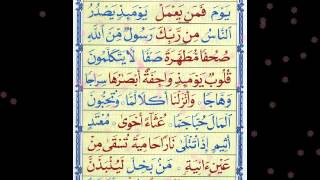 يَوْمَ فَمَنْ يَعْمَلْ يَوْمَئِذٍ يَصْدُرُ
النَّاسُ مِنْ رَبِّكَ رَسُولٌ مِّنَ اللّٰهِ
صُحُفًا مُطَهَّرَةً صَفًّا لَّا يَتَكَلَّمُونَ
قُلُوبٌ يَوْمَئِذٍ وَاجِفَةٌ اَبْصَارُهَا سِرَاجًا
وَهَّاجًا وَاَنْزَلْنَا اَكْلًا لَّمًّا وَتُحِبُّونَ
الْمَالَ حُبًّا جَمًّا غُثَآءً اَحْوٰى مُعْتَدٍ
اَثِيمٍ اِذَا تُتْلٰى نَارًا حَامِيَةً تُسْقٰى مِنْ
عَيْنٍ اٰنِيَةٍ مَنْ بَخِلَ لَيُنْۢبَذَنَّ